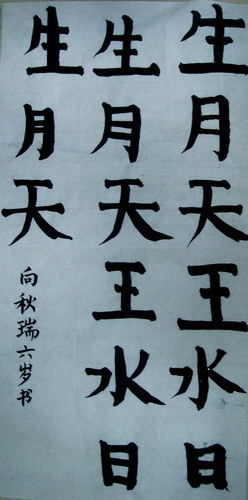 生月天王水日
生月天王水日
生月天
向秋瑞六岁书